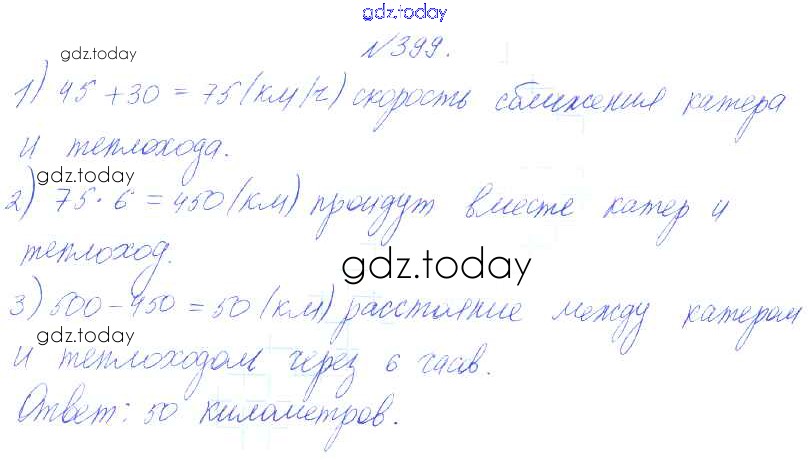 gdz.today
№399.
gdz.today
1) 45 + 30 = 75 (км/ч) скорость сближения катера
и теплохода.
gdz.today
2) 75 · 6 = 450 (км) пройдут вместе катер и
теплоход.
gdz.today
3) 500 – 450 = 50 (км) расстояние между катером
gdz.today
и теплоходом через 6 часов.
Ответ: 50 километров.